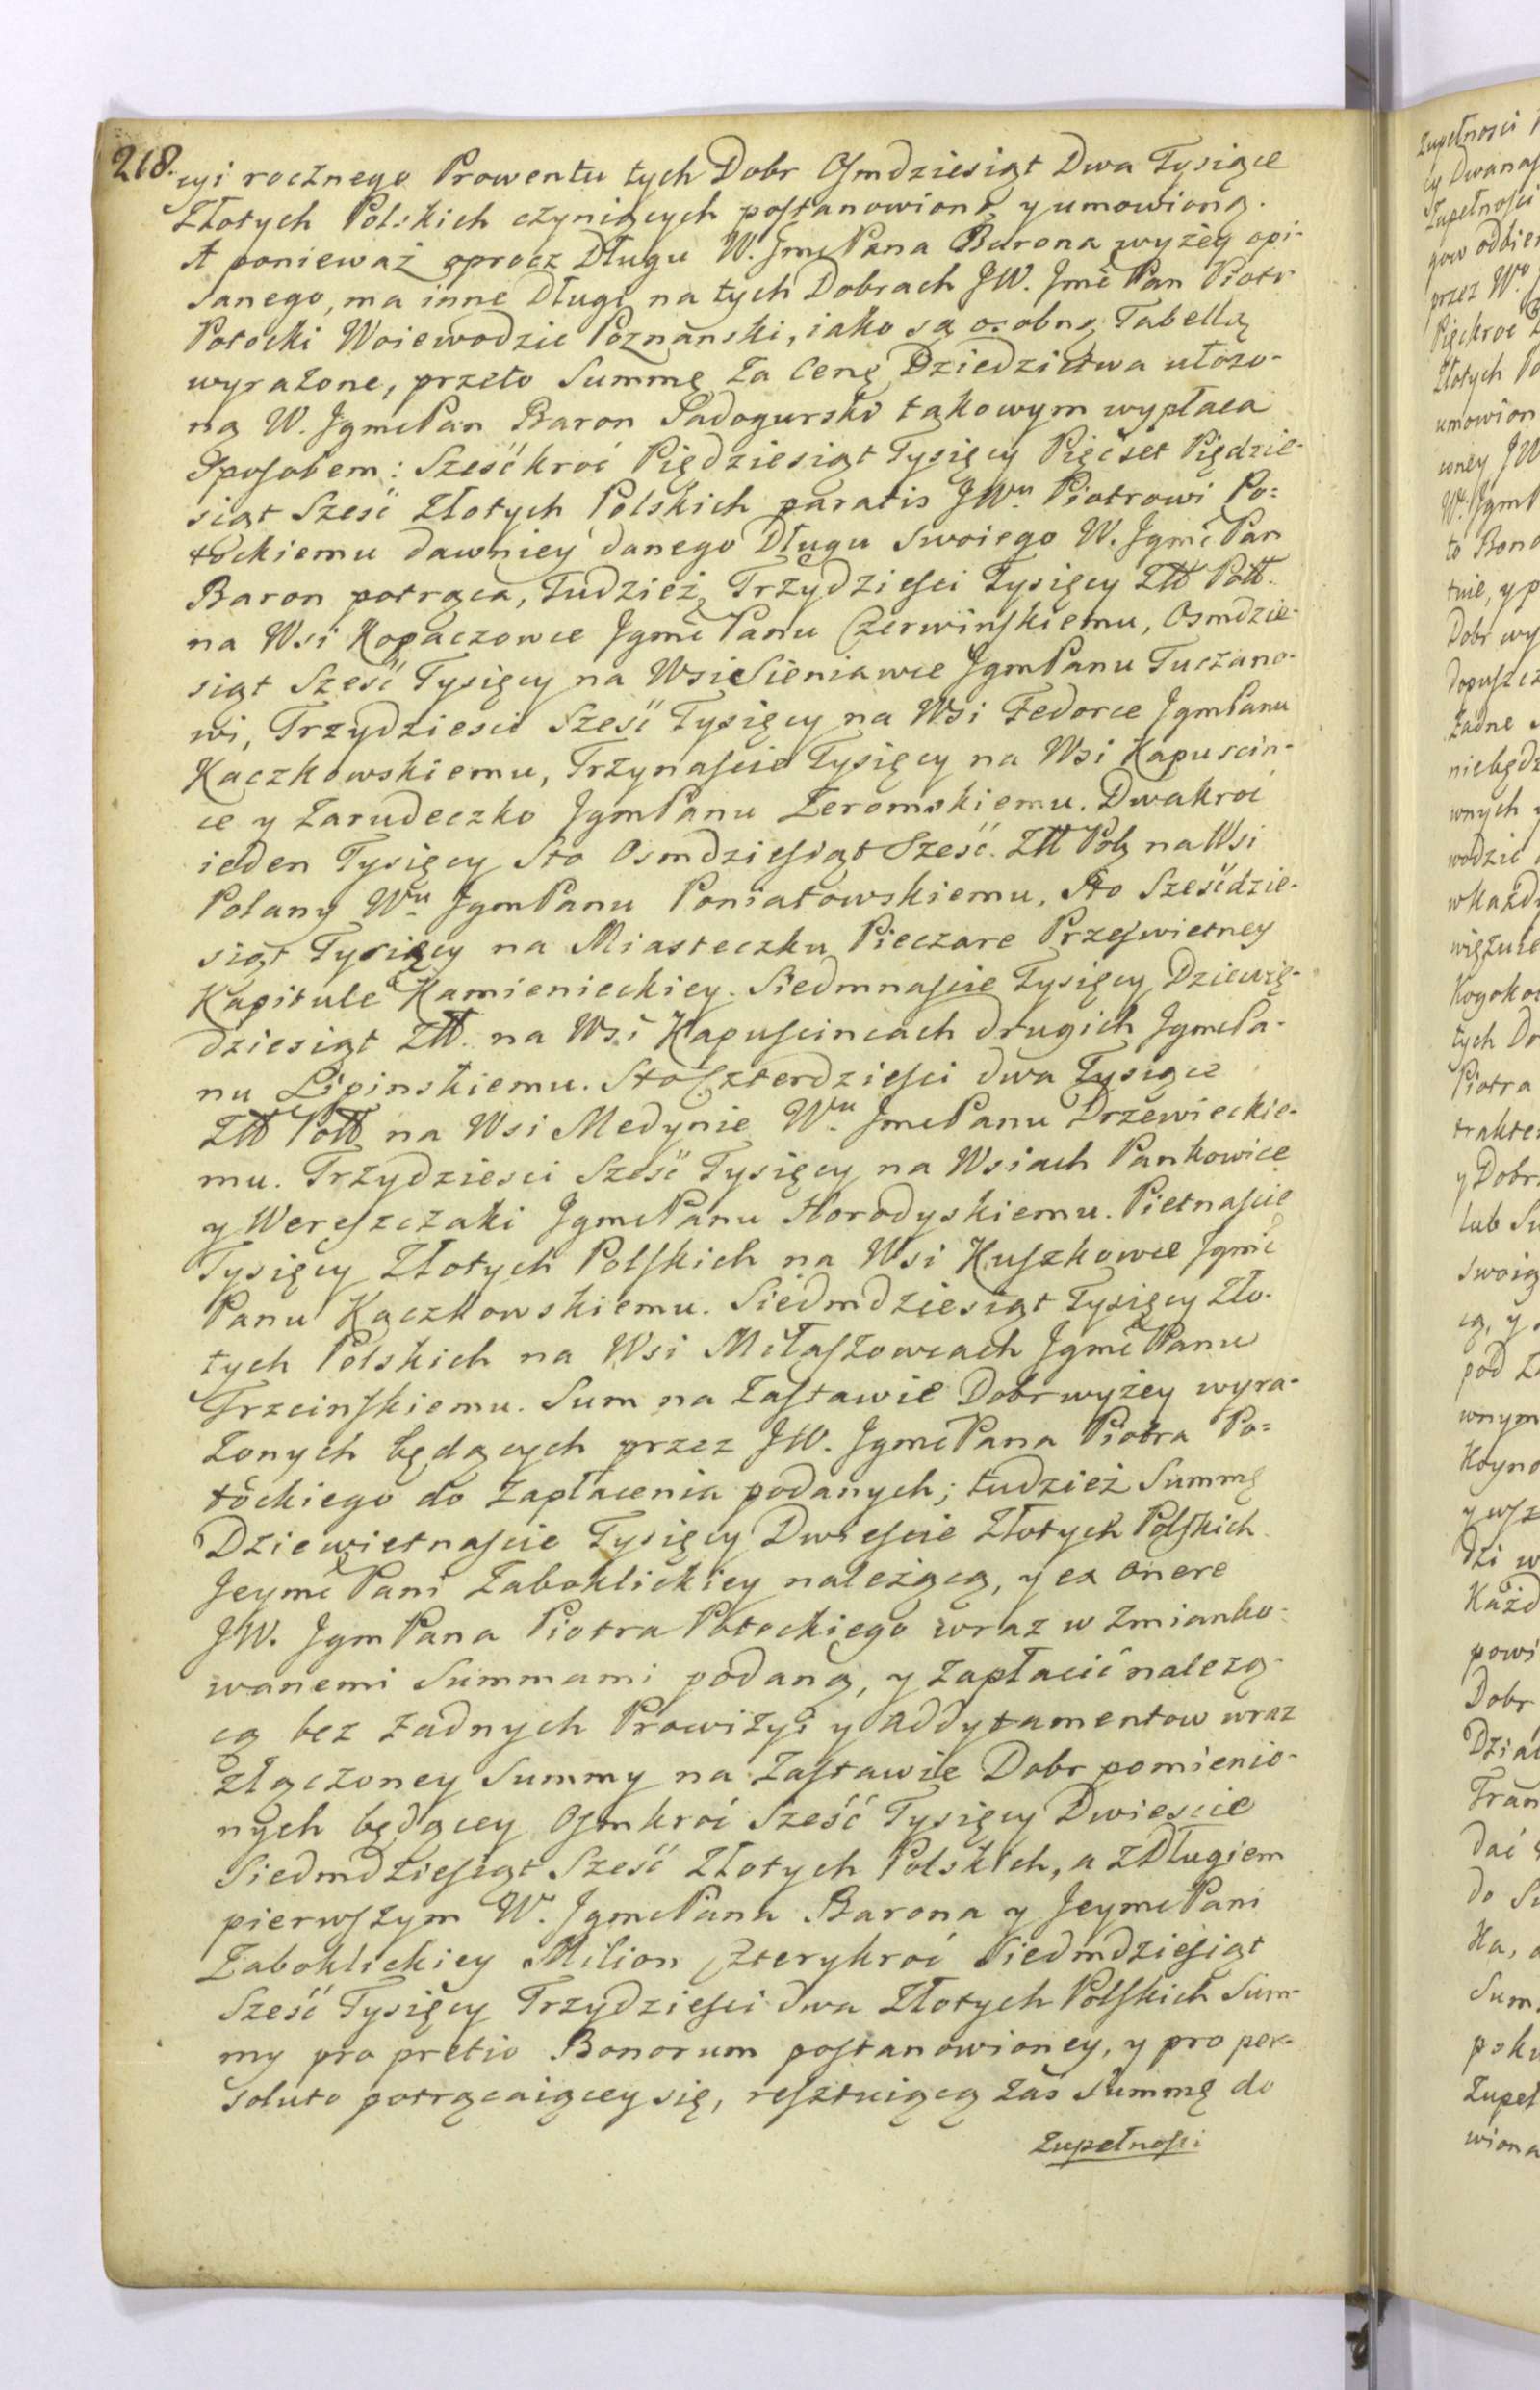 218.
cyi rocznego Prowentu tych Dobr Osmdziesiąt Dwa Tysiące
Złotych Polskich czyniących postanowioną y umowioną.
A ponieważ oprocz Długu W. Jmć Pana Barona wyżey opi-
sanego, ma inne Długi na tych Dobrach JW. Jmć Pan Piotr
Potocki Woiewodzic Poznanski, iako są osobną Tabellą
wyrażone, przeto Summę za Cenę Dziedzictwa ułożo-
ną W. JgmcPan Baron Sadogurski takowym wypłaca
Sposobem: Sześćkroć Piędziesiąt Tysięcy Pięćset Piędzie-
siąt Sześć Złotych Polskich paratis JWu. Piotrowi Po=
tockiemu dawniey danego Długu Swoiego W. Jgmć Pan
Baron potrąca, Tudzież Trzydziesci Tysięcy Złł Poll.
na Wsi Kopaczowce Jgmć Panu Czerwinskiemu, Osmdzie-
siąt Sześć Tysięcy na Wsi Sieniawce JgmPanu Tuczano-
wi, Trzydziesci Sześć Tysięcy na Wsi Fedorce JgmPanu
Kaczkowskiemu, Trzynascie Tysięcy na Wsi Kapuscin-
ce y Zarudeczko JgmPanu Zeromskiemu. Dwakroć
ieden Tysięcy Sto Osmdziesiąt Sześć. Złł Pol. na Wsi
Polany Wu JgmPanu Poniatowskiemu. Sto Sześćdzie-
siąt Tysięcy na Miasteczku Pieczare Przeswietney
Kapitule Kamienieckiey. Siedmnascie Tysięcy Dziewię-
dziesiąt Złł. na Wsi Kapuscincach drugich JgmcPa-
nu Lipinskiemu. Sto Czterdziesci dwa Tysiące
Złł Poll na Wsi Medynie Wu JmcPanu Drzewieckie-
mu. Trzydziesci Sześć Tysięcy na Wsiach Pankowice
y Wereszczaki JgmcPanu Horodyskiemu. Pietnascie
Tysięcy Złotych Polskich na Wsi Huszkowce Jgmć
Panu Kączkowskiemu. Siedmdziesiąt Tysięcy Zło-
tych Polskich na Wsi Miłaszowcach Jgmć Panu
Trzcinskiemu. Sum na Zastawie Dobr wyżey wyra-
żonych będących przez JW. JgmćPana Piotra Po=
tockiego do zapłacenia podanych; tudzież Summę
Dziewietnascie Tysięcy Dwiescie Złotych Polskich
Jeymć Pani Zaboklickiey należącą, y ex onere
JW. Jgm Pana Piotra Potockiego wraz w zmianko-
wanemi Summami podaną, y zapłacić należą-
cą bez żadnych Prowizyi y addytamentow wraz
złączoney Summy na Zastawie Dobr pomienio-
nych będącey Osmkroć Sześć Tysięcy Dwiescie
Siedmdziesiąt Sześć Złotych Polskich, a z Długiem
pierwszym W. JgmcPana Barona y JeymcPani
Zaboklickiey Milion Czterykroć Siedmdziesiąt
Sześć Tysięcy Trzydziesci dwa Złotych Polskich Sum-
my pro pretio Bonorum postanowioney, y pro per-
soluto potrącaiącey się, resztuiącą zas Summę do
Zupełnosci